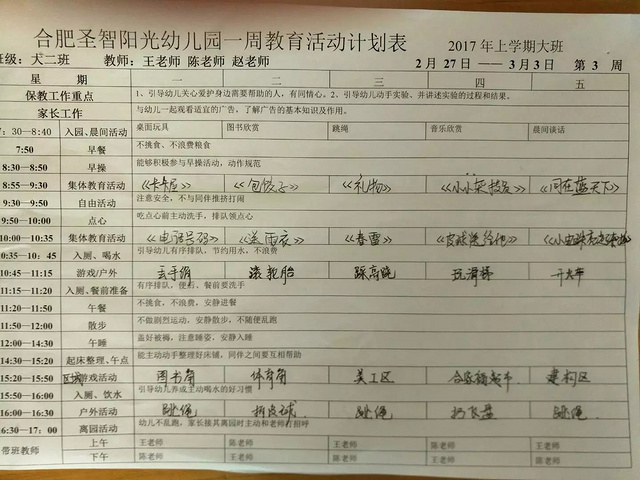 合肥圣智阳光幼儿园一周教育活动计划表 2017年上学期大班
班级：大二班 教师：王老师 陈老师 赵老师 2月27日——3月3日 第3周
星 期 一 二 三 四 五
保教工作重点 1、引导幼儿关心爱护身边需要帮助的人，有同情心。2、引导幼儿动手实验、并讲述实验的过程和结果。
家长工作 与幼儿一起观看适宜的广告，了解广告的基本知识及作用。
7：30—8:40 入园、晨间活动 桌面玩具 图书欣赏 跳绳 音乐欣赏 晨间谈话
7:50 早餐 不挑食、不浪费粮食
8:30—8:50 早操 能够积极参与早操活动，动作规范
8:55—9:30 集体教育活动 《卡卡屋》 《包饺子》 《礼物》 《同在蓝天下》
9:30—9:50 自由活动 注意安全，不与同伴推挤打闹
9:50—10:00 点心 吃点心前主动洗手，排队领点心
10:00—10:35 集体教育活动 《电话号码》 《送雨衣》 《春雷》
10:35—10：45 入厕、喝水 引导幼儿有序排队，节约用水，不浪费
10:45—11:15 游戏/户外 滚轮胎 踩高跷 玩滑梯 开火车
11:15—11:20 入厕、餐前准备 有序排队，便后、餐前要洗手
11:20—11:50 午餐 不挑食，不浪费，安静进餐
11:50—12:00 散步 不做剧烈运动，安静散步，不随便乱跑
12:00—14:30 午睡 盖好被褥，注意睡姿，安静入睡
14:30—15:20 起床整理、午点 能主动动手整理好床铺，同伴之间要互相帮助
15:20—15:50 区域游戏活动 图书角 体育角 美工区 合家福超市 建构区
15:50—16:00 入厕、饮水 引导幼儿养成主动喝水的好习惯
16:00—16:30 户外活动 跳绳 拍皮球 跳绳 扔飞盘 跳绳
16:30—17：00 离园活动 幼儿不乱跑，家长接其离园时主动和老师打招呼
带班教师 上午 王老师 陈老师 王老师 陈老师 王老师
下午 陈老师 王老师 陈老师 王老师 陈老师